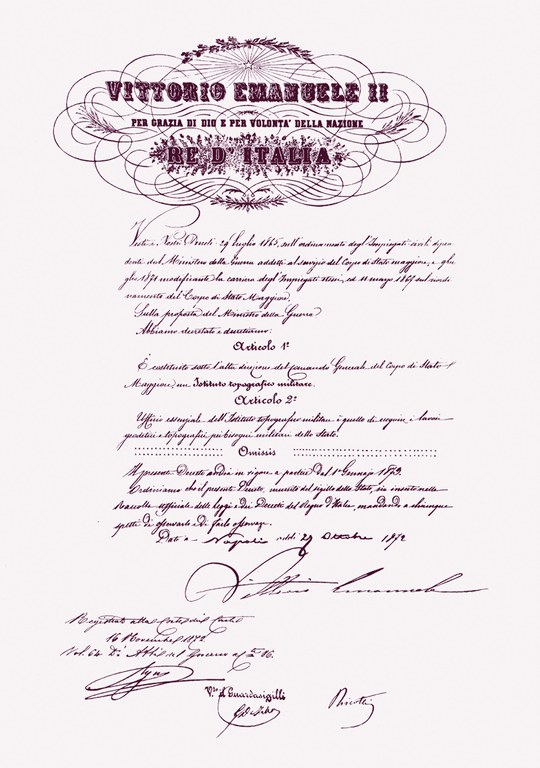 VITTORIO EMANUELE II
PER GRAZIA DI DIO E PER VOLONTA' DELLA NAZIONE
RE D'ITALIA
Visti i Nostri Decreti 29 Luglio 1865, sull'ordinamento degl'Impiegati civili dipen
denti dal Ministero della Guerra addetti al servizio del Corpo di Stato maggiore, e
glio 1871 modificante la carriera degl'Impiegati stessi, ed 11 marzo 1867 sul riordi
namento del Corpo di Stato Maggiore;
Sulla proposta del Ministro della Guerra
Abbiamo decretato e decretiamo:
Articolo 1º
È costituito sotto l'alta direzione del Comando Generale del Corpo di Stato
Maggiore, un Istituto topografico militare.
Articolo 2º
Ufficio essenziale dell'Istituto topografico militare è quello di eseguire i lavori
geodetici e topografici pei bisogni militari dello Stato.
Omissis
Il presente Decreto andrà in vigore a partire dal 1º Gennajo 1873.
Ordiniamo che il presente Decreto, munito del sigillo dello Stato, sia inserto nella
Raccolta ufficiale delle leggi e dei Decreti del Regno d'Italia, mandando a chiunque
spetti di osservarlo e di farlo osservare.
Dato a Napoli addì 27 Ottobre 1872
Vittorio Emanuele
Registrato alla Corte dei Conti
16 Novembre 1872
Vol. 64 Di Atti del Governo a f. 86.
Vto il Guardasigilli
Ricotti